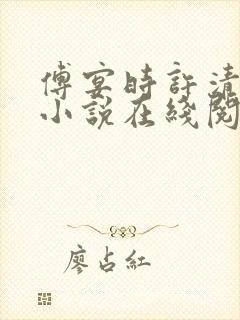 傅宴時許清
小說在綫閱
廖占紅